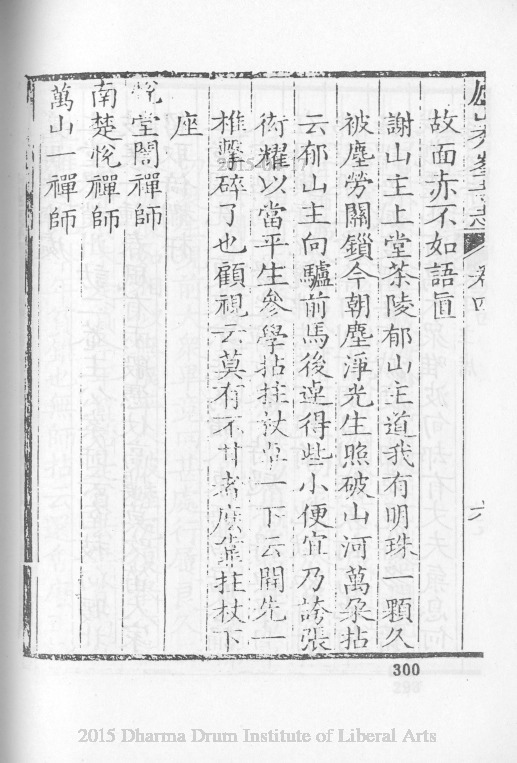 廬山秀峯寺志 卷四 六
故面赤不如語直
謝山主上堂茶陵郁山主道我有明珠一顆久
被塵勞關鎖今朝塵淨光生照破山河萬朶拈
云郁山主向驢前馬後連得些小便宜乃誇張
衒耀以當平生參學拈拄杖卓一下云開先一
椎擊碎了也顧視云莫有不甘者麽棄拄杖下
座
悅堂誾禪師
南楚悅禪師
萬山一禪師
300
2015 Dharma Drum Institute of Liberal Arts